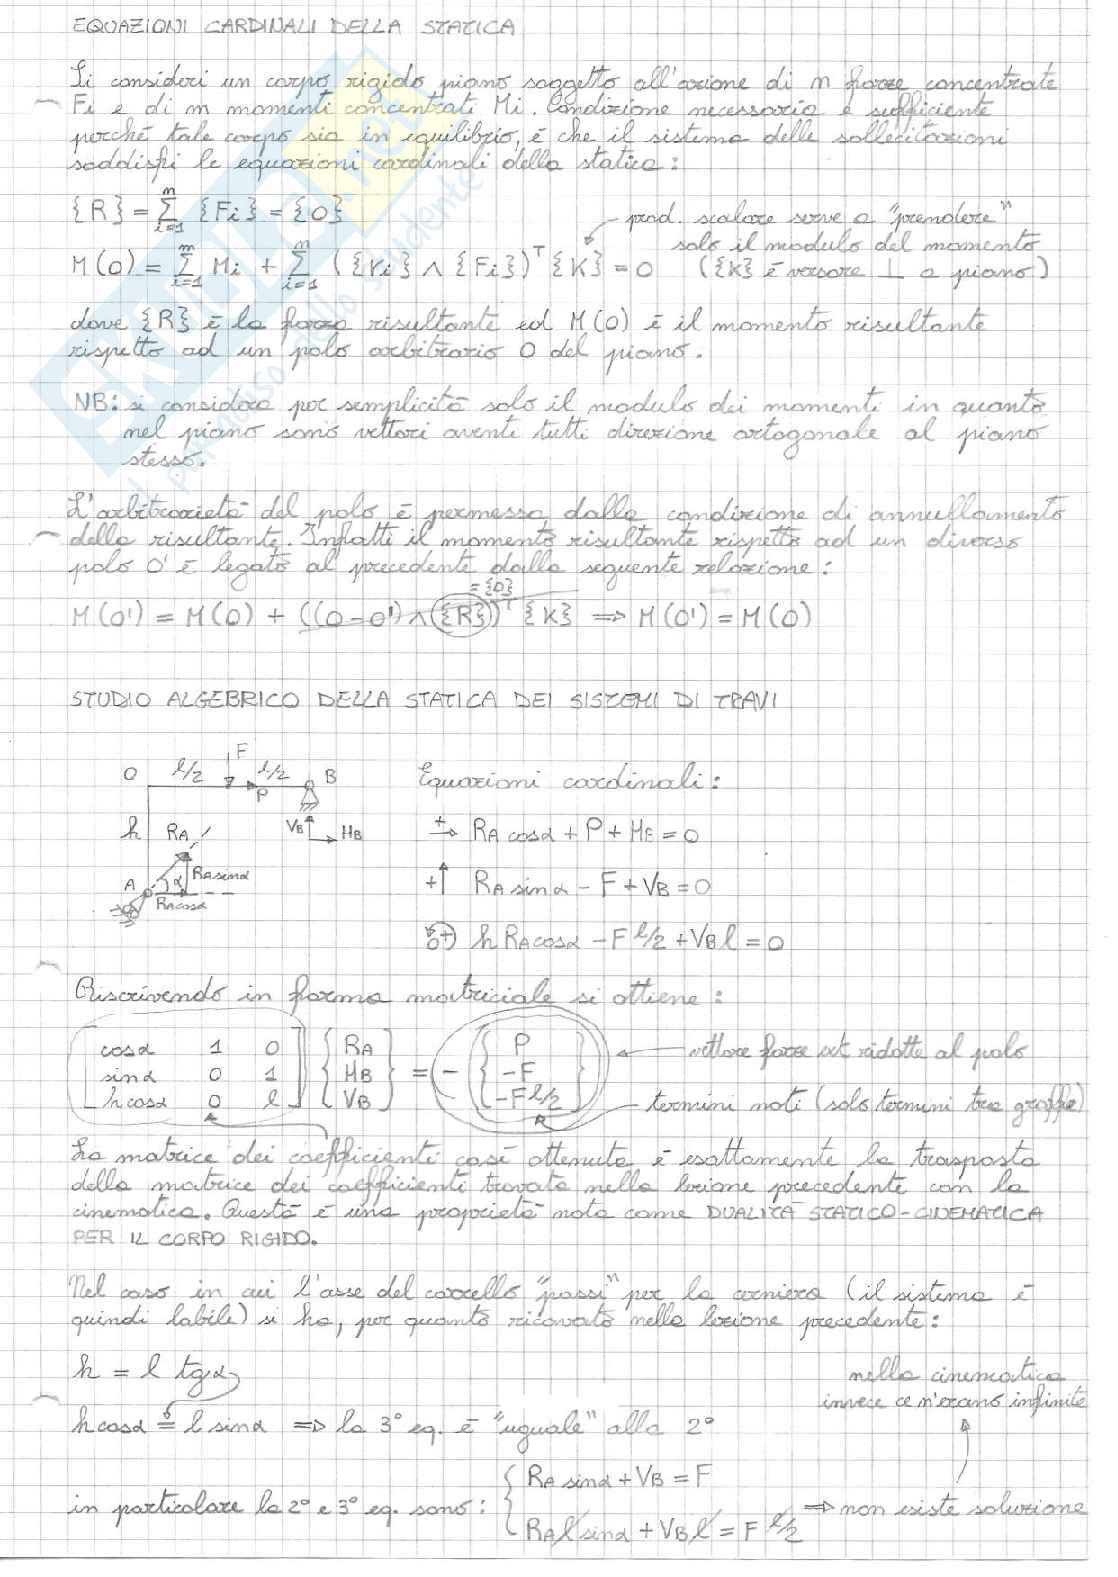 EQUAZIONI CARDINALI DELLA STATICA
Si consideri un corpo rigido piano soggetto all'azione di n forze concentrate
Fi e di m momenti concentrati Mi. Condizione necessaria e sufficiente
perché tale corpo sia in equilibrio, è che il sistema delle sollecitazioni
soddisfi le equazioni cardinali della statica:
{R} = Σ_{i=1}^{n} {Fi} = {0}
prod. scalare serve a "prendere"
solo il modulo del momento
M(O) = Σ_{i=1}^{m} Mi + Σ_{i=1}^{n} ({ri} ∧ {Fi})^T {K} = 0 ({K} è versore ⊥ a piano)
dove {R} è la forza risultante ed M(O) è il momento risultante
rispetto ad un polo arbitrario O del piano.
NB: si considera per semplicità solo il modulo dei momenti in quanto
nel piano sono vettori aventi tutti direzione ortogonale al piano
stesso.
L'arbitrarietà del polo è permessa dalla condizione di annullamento
della risultante. Infatti il momento risultante rispetto ad un diverso
polo O' è legato al precedente dalla seguente relazione:
= {0}
M(O') = M(O) + ((O-O') ∧ {R})^T {K} ⇒ M(O') = M(O)
STUDIO ALGEBRICO DELLA STATICA DEI SISTEMI DI TRAVI
O l/2 F l/2 B
P
h RA VB HB
A α RA sinα
RA cosα
Equazioni cardinali:
+→ RA cosα + P + HB = 0
+↑ RA sinα - F + VB = 0
O +) h RA cosα - F l/2 + VB l = 0
Riscrivendo in forma matriciale si ottiene:
[cosα 1 0] {RA} {P} ← vettore forze est ridotte al polo
[sinα 0 1] {HB} = - {-F}
[h cosα 0 l] {VB} {-F l/2} termini noti (solo termini tra graffe)
La matrice dei coefficienti così ottenuta è esattamente la trasposta
della matrice dei coefficienti trovata nella lezione precedente con la
cinematica. Questa è una proprietà nota come DUALITÀ STATICO-CINEMATICA
PER IL CORPO RIGIDO.
Nel caso in cui l'asse del carrello "passi" per la cerniera (il sistema è
quindi labile) si ha, per quanto ricavato nella lezione precedente:
h = l tgα
nella cinematica
invece ce n'erano infinite
h cosα = l sinα ⇒ la 3° eq. è "uguale" alla 2°
in particolare la 2° e 3° eq. sono: { RA sinα + VB = F
RA l sinα + VB l = F l/2 ⇒ non esiste soluzione
SKUOLA.net
il paradiso dello studente